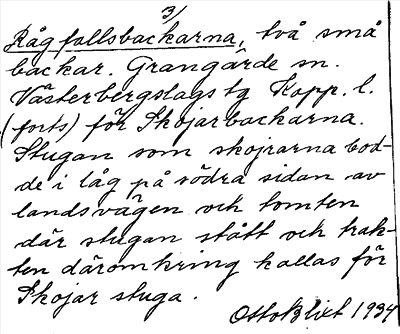 3/
Råg fallsbackarna, två små
backar. Grangärde sn.
Västerbergslags tg Kopp. l.
(forts) för Skojarbackarna.
Stugan som skojrarna bod-
de i låg på södra sidan av
landsvägen och tomten
där stugan stått och trak-
ten däromkring kallas för
Skojar stuga.
Otto Blixt 1934